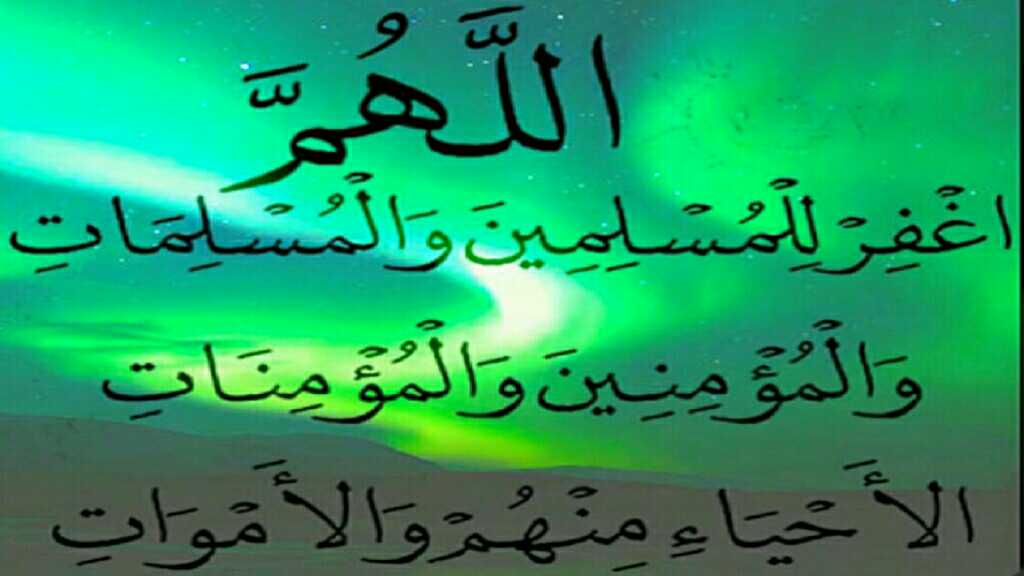 اللَّهُمَّ
اغْفِرْ لِلْمُسْلِمِينَ وَالْمُسْلِمَاتِ
وَالْمُؤْمِنِينَ وَالْمُؤْمِنَاتِ
الأَحْيَاءِ مِنْهُمْ وَالأَمْوَاتِ